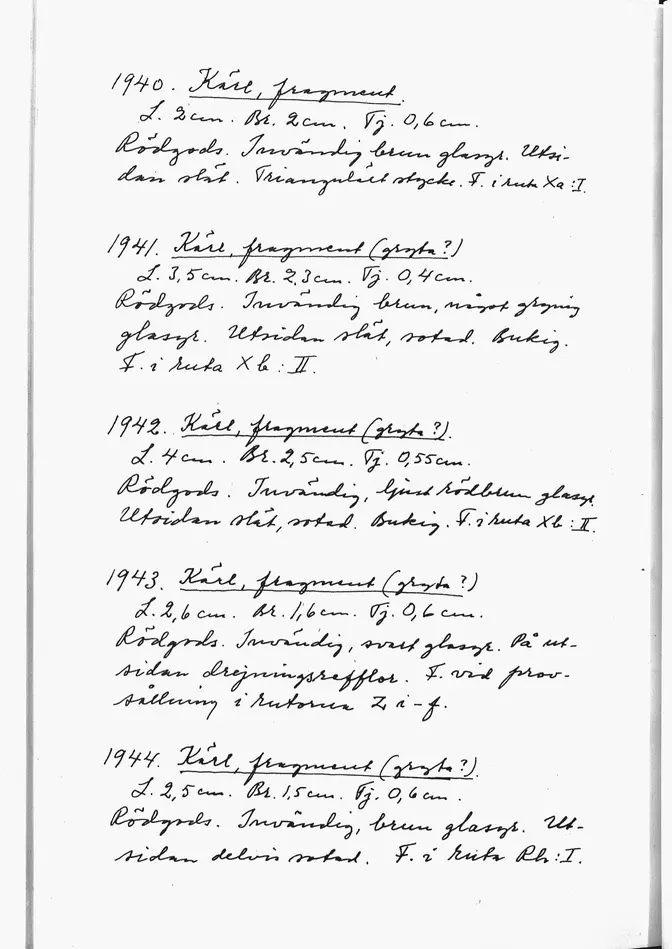 1940. Kärl, fragment.
L. 2cm. Br. 2cm. Tj. 0,6cm.
Rödgods. Invändig brun glasyr. Utsi-
dan slät. Triangulärt stycke. F. i ruta Xa:I.
1941. Kärl, fragment (gryta?)
L. 3,5cm. Br. 2,3cm. Tj. 0,4cm.
Rödgods. Invändig brun, något grynig
glasyr. Utsidan slät, sotad. Bukig.
F. i ruta Xb: II.
1942. Kärl, fragment (gryta?).
L. 4cm. Br. 2,5cm. Tj. 0,55cm.
Rödgods. Invändig, ljust rödbrun glasyr.
Utsidan slät, sotad. Bukig. F. i ruta Xb:II.
1943. Kärl, fragment (gryta?)
L. 2,6cm. Br. 1,6cm. Tj. 0,6cm.
Rödgods. Invändig, svart glasyr. På ut-
sidan drejningsrefflor. F. vid prov-
sållning i rutorna Z i-f.
1944. Kärl, fragment (gryta?).
L. 2,5cm. Br. 1,5cm. Tj. 0,6cm.
Rödgods. Invändig, brun glasyr. Ut-
sidan delvis sotad. F. i ruta Rh:I.